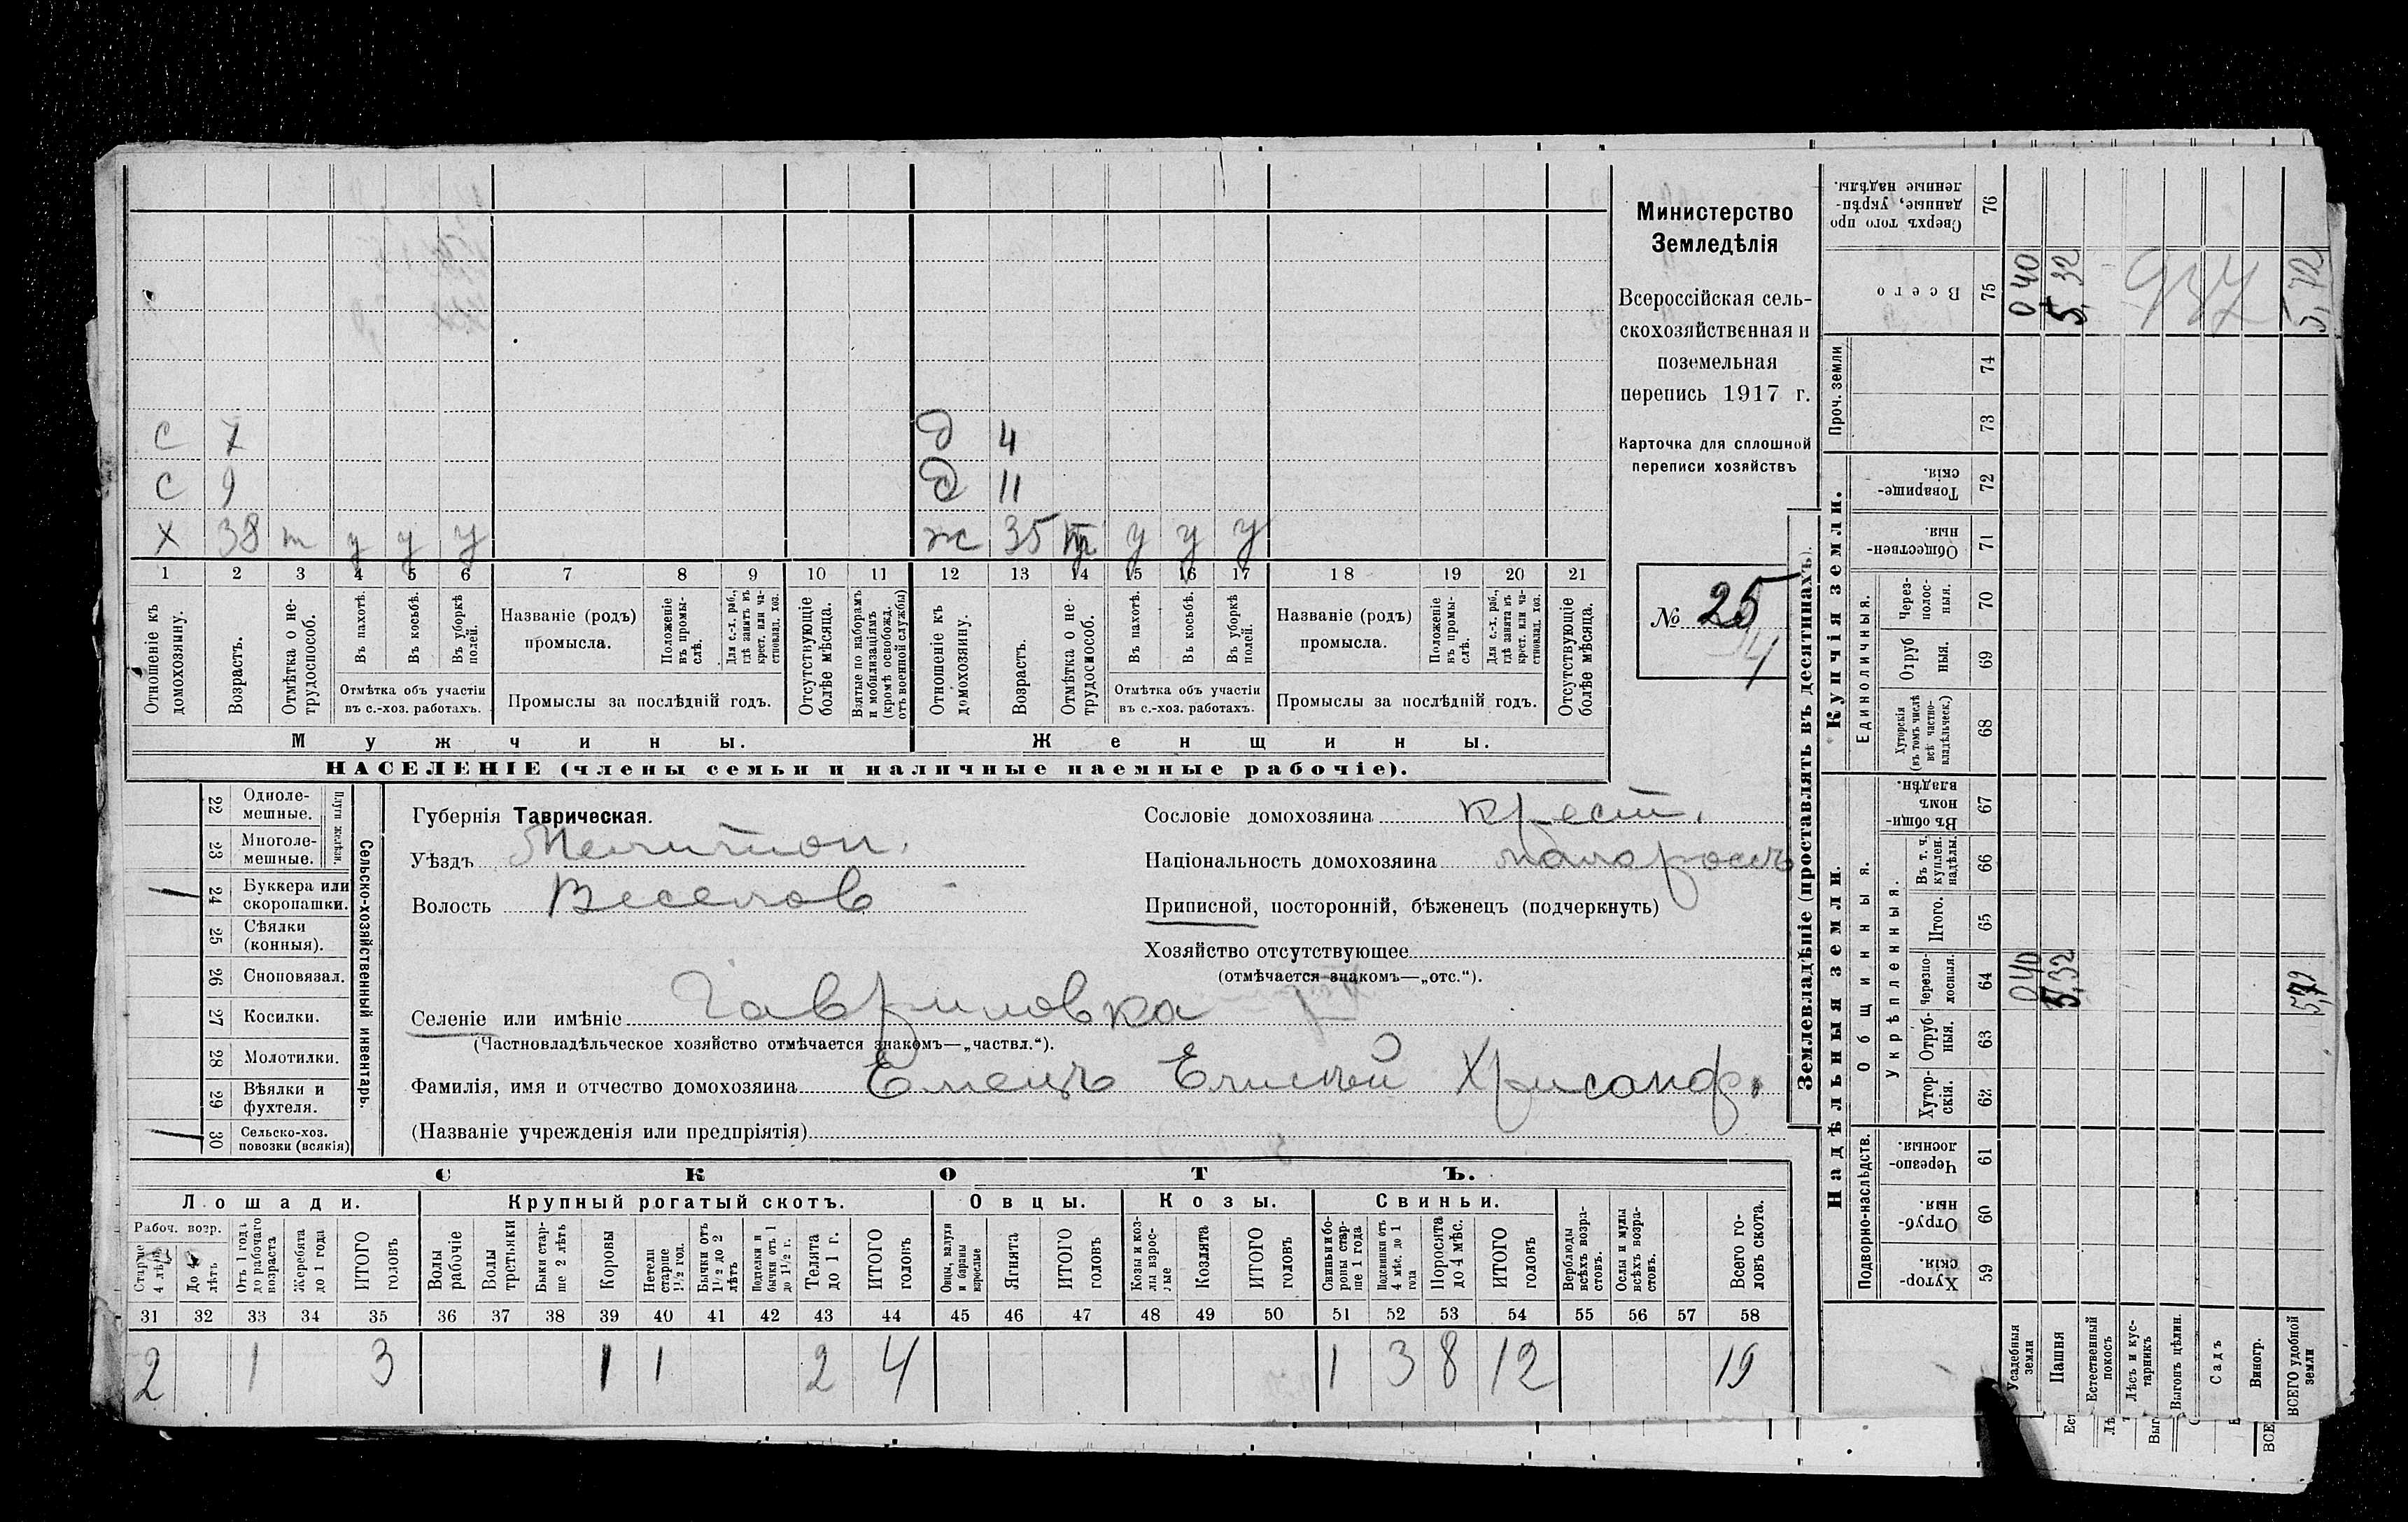 Министерство
Земледѣлія
Всероссійская сель-
скохозяйственная и
поземельная
перепись 1917 г.
Карточка для сплошной
переписи хозяйствъ
№ 25
с 7 д 4
с 9 д 11
х 38 т у у у ж 35 т у у у
1 2 3 4 5 6 7 8 9 10 11 12 13 14 15 16 17 18 19 20 21
Отношеніе къ домохозяину.
Возрастъ.
Отмѣтка о не-трудоспособ.
Въ пахотѣ.
Въ косьбѣ.
Въ уборкѣ полей.
Отмѣтка объ участіи
въ с.-хоз. работахъ.
Названіе (родъ)
промысла.
Положеніе въ промы-слѣ.
Для с.-х. раб., гдѣ занятъ въ крест. или ча-стновлад. хоз.
Промыслы за послѣдній годъ.
Отсутствующіе болѣе мѣсяца.
Взятые по наборамъ и мобилизаціямъ (кромѣ освобожд. отъ военной службы)
Отношеніе къ домохозяину.
Возрастъ.
Отмѣтка о не-трудоспособ.
Въ пахотѣ.
Въ косьбѣ.
Въ уборкѣ полей.
Отмѣтка объ участіи
въ с.-хоз. работахъ.
Названіе (родъ)
промысла.
Положеніе въ промы-слѣ.
Для с.-х. раб., гдѣ занята въ крест. или ча-стновлад. хоз.
Промыслы за послѣдній годъ.
Отсутствующіе болѣе мѣсяца.
Мужчины.
Женщины.
НАСЕЛЕНІЕ (члены семьи и наличные наемные рабочіе).
Сельско-хозяйственный инвентарь.
Плуги желѣзн.
22 Одноле-мешные.
23 Многоле-мешные.
24 Буккера или скоропашки.
25 Сѣялки (конныя).
26 Сноповязал.
27 Косилки.
28 Молотилки.
29 Вѣялки и фухтеля.
30 Сельско-хоз. повозки (всякія)
Губернія Таврическая.
Уѣздъ Мелитоп.
Волость Веселов
Сословіе домохозяина крест.
Національность домохозяина малороссъ
Приписной, посторонній, бѣженецъ (подчеркнуть)
Хозяйство отсутствующее
(отмѣчается знакомъ—„отс.“).
Селеніе или имѣніе Гавриловка
(Частновладѣльческое хозяйство отмѣчается знакомъ—„частвл.“).
Фамилія, имя и отчество домохозяина Емецъ Елисѣй Хрисанф.
(Названіе учрежденія или предпріятія)
СКОТЪ.
Лошади. Крупный рогатый скотъ. Овцы. Козы. Свиньи.
Рабоч. возр.
Старше 4 лѣтъ
До 4 лѣтъ
Отъ 1 года до рабочаго возраста
Жеребята до 1 года
ИТОГО головъ
Волы рабочіе
Волы третьяки
Быки стар-ше 2 лѣтъ
Коровы
Нетели старше 1 1/2 год.
Бычки отъ 1 1/2 до 2 лѣтъ
Подтелки и бычки отъ 1 до 1 1/2 г.
Телята до 1 г.
ИТОГО головъ
Овцы, валухи и бараны взрослые
Ягнята
ИТОГО головъ
Козы и коз-лы взрос-лые
Козлята
ИТОГО головъ
Свиньи и бо-ровы стар-ше 1 года
Подсвинки отъ 4 мѣс. до 1 года
Поросята до 4 мѣс.
ИТОГО головъ
Верблюды всѣхъ возра-стовъ.
Ослы и мулы всѣхъ возра-стовъ.
Всего го-ловъ скота.
31 32 33 34 35 36 37 38 39 40 41 42 43 44 45 46 47 48 49 50 51 52 53 54 55 56 57 58
2 1 3 1 1 2 4 1 3 8 12 19
Землевладѣніе (проставлять въ десятинахъ).
Надѣльныя земли.
Купчія земли.
Проч. земли
Подворно-наслѣдств.
Общинныя.
Укрѣпленныя.
Единоличныя.
Хутор-скія. 59
Отруб-ныя. 60
Черезпо-лосныя. 61
Хутор-скія. 62
Отруб-ныя. 63
Черезпо-лосныя. 64
Итого. 65
Въ т. ч. куплен. надѣлы. 66
Въ общин-номъ владѣн. 67
Хуторскія (въ томъ числѣ всѣ частно-владѣльческ.) 68
Отруб ныя. 69
Через-полос-ныя. 70
Обществен-ныя. 71
Товарище-скія. 72
73
74
Всего 75
Сверхъ того про данные, укрѣп-ленные надѣлы. 76
Усадебныя земли 0 40 0 40
Пашня 5,32 5,32
Естественный покосъ
Лѣсъ и кус-тарникъ
Выгонъ цѣлин.
Садъ
Виногр.
ВСЕГО удобной земли 5,72 5,72
937